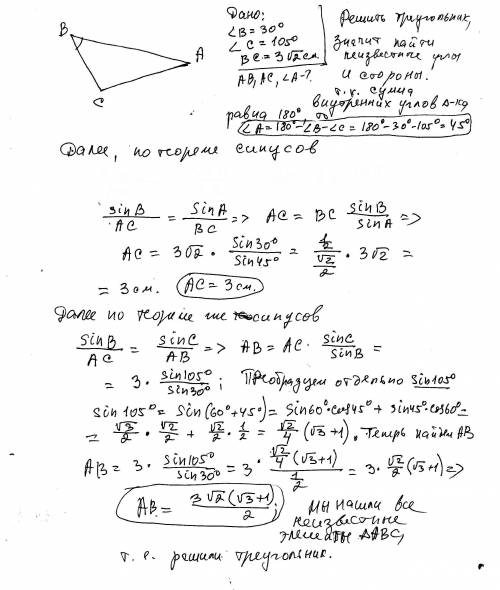 B
A
C
Дано:
∠B = 30°
∠C = 105°
BC = 3√2 см.
AB, AC, ∠A - ?
Решить треугольник,
значит найти
неизвестные углы
и стороны.
т.к. сумма
внутренних углов Δ-ка
равна 180°, то
∠A = 180° - ∠B - ∠C = 180° - 30° - 105° = 45°
Далее, по теореме синусов
sinB/AC = sinA/BC => AC = BC sinB/sinA =>
AC = 3√2 · sin30°/sin45° = (1/2)/(√2/2) · 3√2 =
= 3 см. AC = 3 см.
Далее по теореме же синусов
sinB/AC = sinC/AB => AB = AC · sinC/sinB =
= 3 · sin105°/sin30° ; Преобразуем отдельно sin105°
sin 105° = sin(60° + 45°) = sin60° · cos45° + sin45° · cos60° =
= √3/2 · √2/2 + √2/2 · 1/2 = √2/4 (√3+1). Теперь найдем AB
AB = 3 · sin105°/sin30° = 3 · (√2/4 (√3+1))/(1/2) = 3 · √2/2 (√3+1) =>
AB = 3√2(√3+1)/2 ;
Мы нашли все
неизвестные
элементы ΔABC,
т.е. решили треугольник.